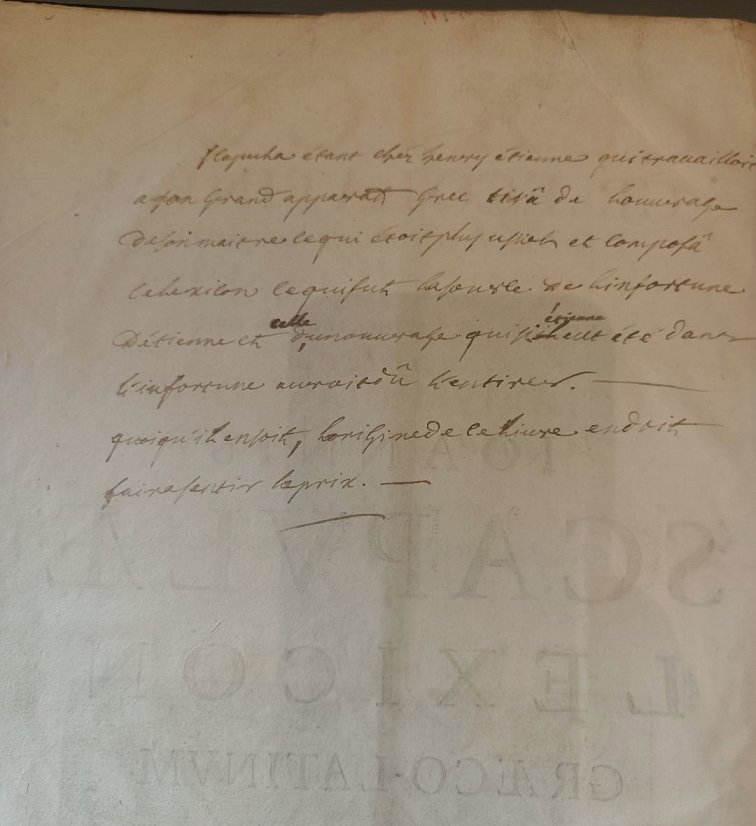 Scapula étant chéz henry étienne qui travailloit
a son Grand apparat Grec tira de l'ouvrage
de son maitre ce qui étoit plus usité et composa
ce lexicon ce qui fut la source de l'infortune
D'étienne et celle d'un ouvrage qui si étienne eut été dans
l'infortune auroit dû l'en tirer.
quoiqu'il en soit, l'origine de ce livre en doit
faire sentir le prix.
SCAPVLÆ
LEXICON
GRÆCO-LATINVM